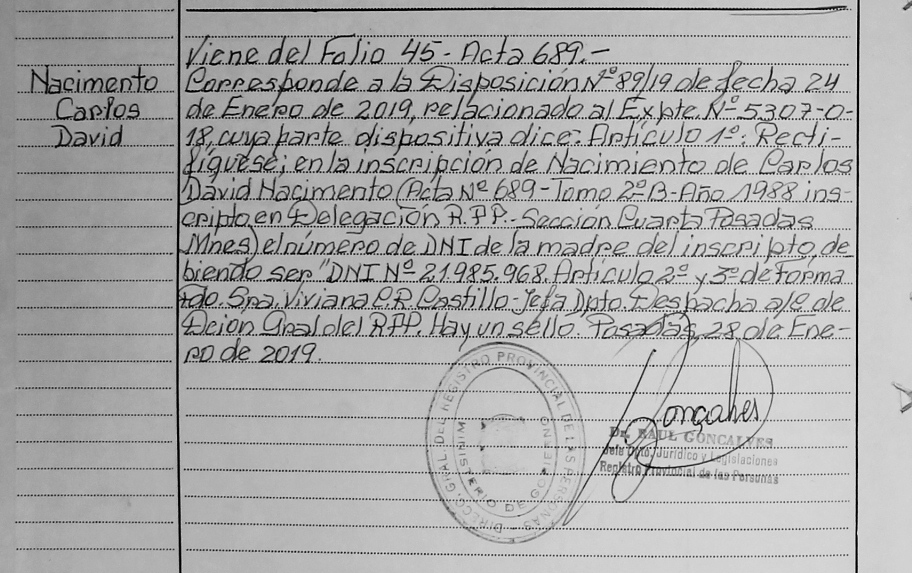 Viene del Folio 45 - Acta 689.-
Nacimento
Carlos
David
Corresponde a la Disposición Nº 89/19 de fecha 24
de Enero de 2019, relacionado al Expte. Nº 5307-0-
18, cuya parte dispositiva dice: Artículo 1º: Recti-
fíquese; en la inscripción de Nacimiento de Carlos
David Nacimento (Acta Nº 689 - Tomo 2º B - Año 1988 ins-
cripto en Delegación R.P.P. - Sección Cuarta Posadas
Mnes) el número de DNI de la madre del inscripto, de
biendo ser "DNI Nº 21.985.968. Artículo 2º y 3º de forma
Fdo. Sra. Viviana C.R. Castillo - Jefa Dpto. Despacha a/c de
Dcion. Gral del RPP. Hay un sello. Posadas, 28 de Ene-
ro de 2019.
DIRECC. GRAL. DEL REGISTRO PROVINCIAL DE LAS PERSONAS
MINISTERIO DE GOBIERNO
Goncalves
Dr. RAUL GONCALVES
Jefe Dpto. Jurídico y Legislaciones
Registro Provincial de las Personas